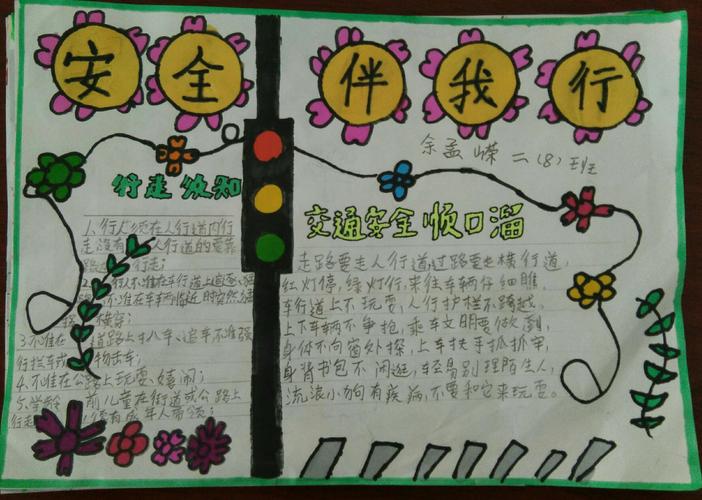 安全伴我行
余孟嵘 二(8)班
行走须知
1、行人须在人行道内行
走,没有 人行道的要靠
路 行走;
2、 行人不准在车行道上追逐、
不准在车辆临近时突然
横穿;
3、不准在 道路上扒车、追车不准强
行拦车或 物击车;
4、不准在公路上玩耍、嬉闹;
5、学龄 前儿童在街道或公路上
行走 须有成年人带领;
交通安全顺口溜
走路要走人行道,过路要走横行道,
红灯停,绿灯行,来往车辆仔细瞧,
车行道上不玩耍,人行护栏不跨越,
上下车辆不争抢,乘车文明要做到,
身体不向窗外探,上车扶手抓抓牢,
身背书包不闲逛,轻易别理陌生人,
流浪小狗有疾病,不要和它来玩耍。